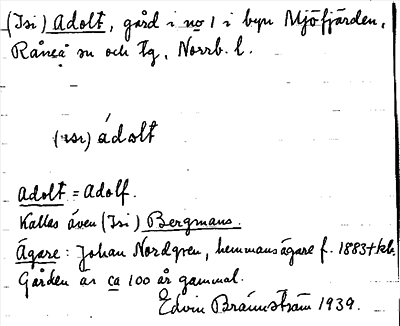 (Isi) Adolt, gård i no 1 i byn Mjöfjärden,
Råneå sn och tg, Norrb. l.
(isi) ádolt
Adolt = Adolf.
Kallas även (Isi) Bergmans.
Ägare: Johan Nordgren, hemmansägare f. 1883 +kb.
Gården är ca 100 år gammal.
Edvin Brännström 1939.